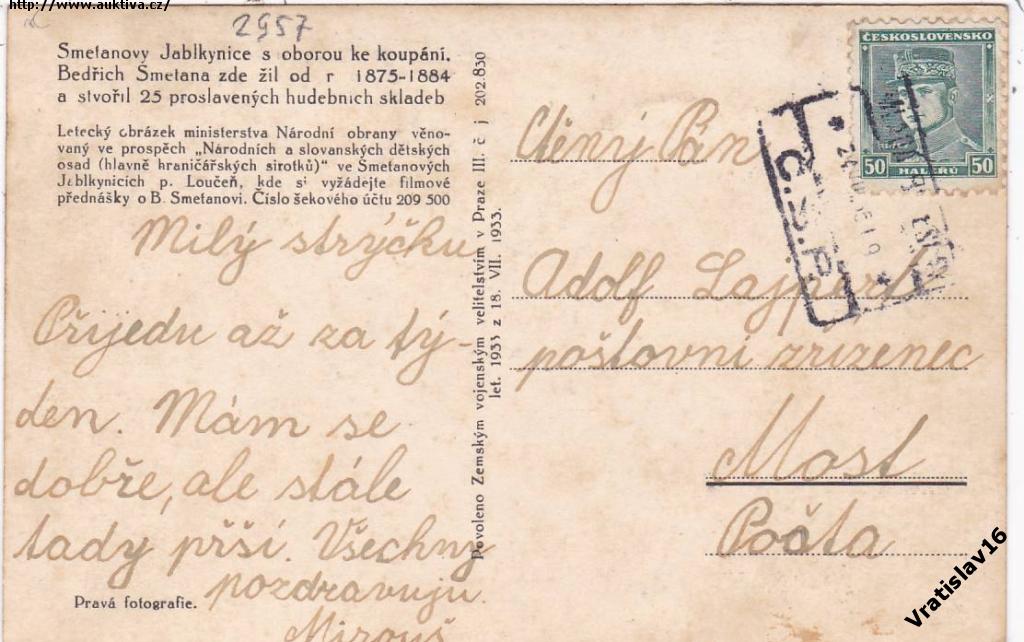 http://www.auktiva.cz/
2957
Smetanovy Jablkynice s oborou ke koupání.
Bedřich Smetana zde žil od r 1875-1884
a stvořil 25 proslavených hudebních skladeb
Letecký obrázek ministerstva Národní obrany věno-
vaný ve prospěch „Národních a slovanských dětských
osad (hlavně hraničářských sirotků)" ve Smetanových
Jablkynicích p. Loučeň, kde si vyžádejte filmové
přednášky o B. Smetanovi. Číslo šekového účtu 209 500
Milý strýčku
Přijedu až za tý-
den. Mám se
dobře, ale stále
tady prší. Všechny
pozdravuju.
Mirouš
Pravá fotografie.
Povoleno Zemským vojenským velitelstvím v Praze III. č j 202.830
let. 1933 z 18. VII. 1933.
ČESKOSLOVENSKO
50 HALÉŘŮ 50
Č.S.P.
Ctěný Pán
Adolf Lajpert
poštovní zrizenec
Most
Pošta
Vratislav16